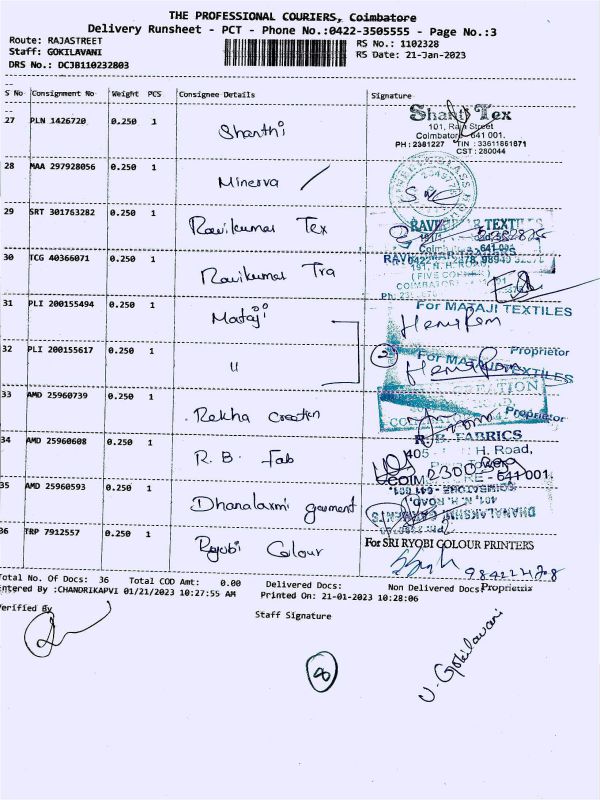 THE PROFESSIONAL COURIERS, Coimbatore
Delivery Runsheet - PCT - Phone No.:0422-3505555 - Page No.:3
Route: RAJASTREET
Staff: GOKILAVANI
DRS No.: DCJB110232803
RS No.: 1102328
RS Date: 21-Jan-2023
S No Consignment No Weight PCS Consignee Details Signature
27 PLN 1426720 0.250 1 Shanthi
Shanti Tex
101, Raja Street
Coimbatore 641 001.
PH : 2381227 TIN : 33611861871
CST : 280044
28 MAA 297928056 0.250 1 Minerva
29 SRT 301763282 0.250 1 Ravikumar Tex
TEXTILES
30 TCG 40366071 0.250 1 Ravikumar Tra
191, N. H. ROAD,
( FIVE CORNER )
31 PLI 200155494 0.250 1 Mataji
For MATAJI TEXTILES
Proprietor
32 PLI 200155617 0.250 1 "
2
For MATAJI TEXTILES
Proprietor
33 AMD 25960739 0.250 1 Rekha creation
CREATION
34 AMD 25960608 0.250 1 R. B. Fab
R. B. FABRICS
405 H. Road,
641 001
35 AMD 25960593 0.250 1 Dhanalaxmi garment
DHANALAKSHMI GARMENTS
36 TRP 7912557 0.250 1 Ryobi Colour
For SRI RYOBI COLOUR PRINTERS
Proprietrix
Total No. Of Docs: 36 Total COD Amt: 0.00 Delivered Docs: Non Delivered Docs:
Entered By :CHANDRIKAPVI 01/21/2023 10:27:55 AM Printed On: 21-01-2023 10:28:06
Verified By
Staff Signature
8
V. Gokilavani